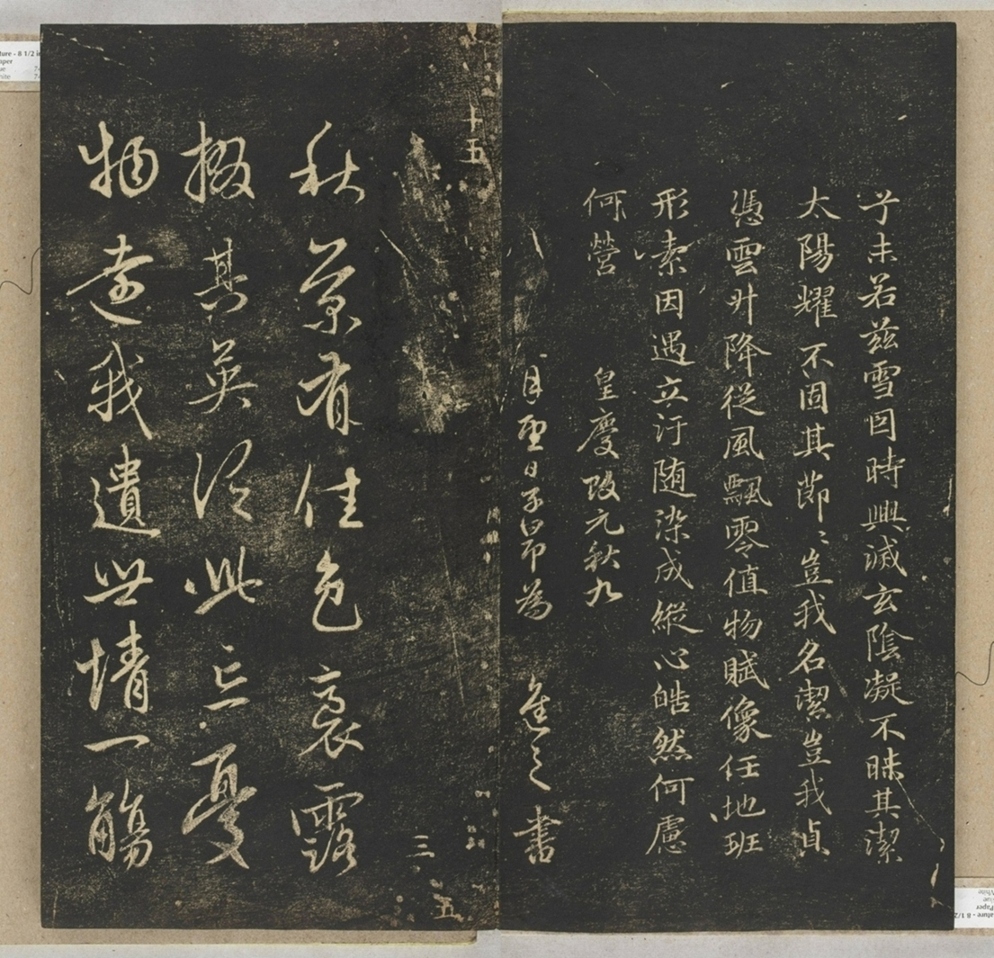 子未若茲雪因時興滅玄陰凝不昧其潔
太陽耀不固其節〻豈我名潔豈我貞
憑雲升降從風飄零值物賦像任地班
形素因遇立汙随染成縱心皓然何慮
何營 皇慶改元秋九
八月望日子昂為 進之書
十五
三
五
秋菊有佳色裛露
掇其英汎此忘憂
物遠我遺世情一觴